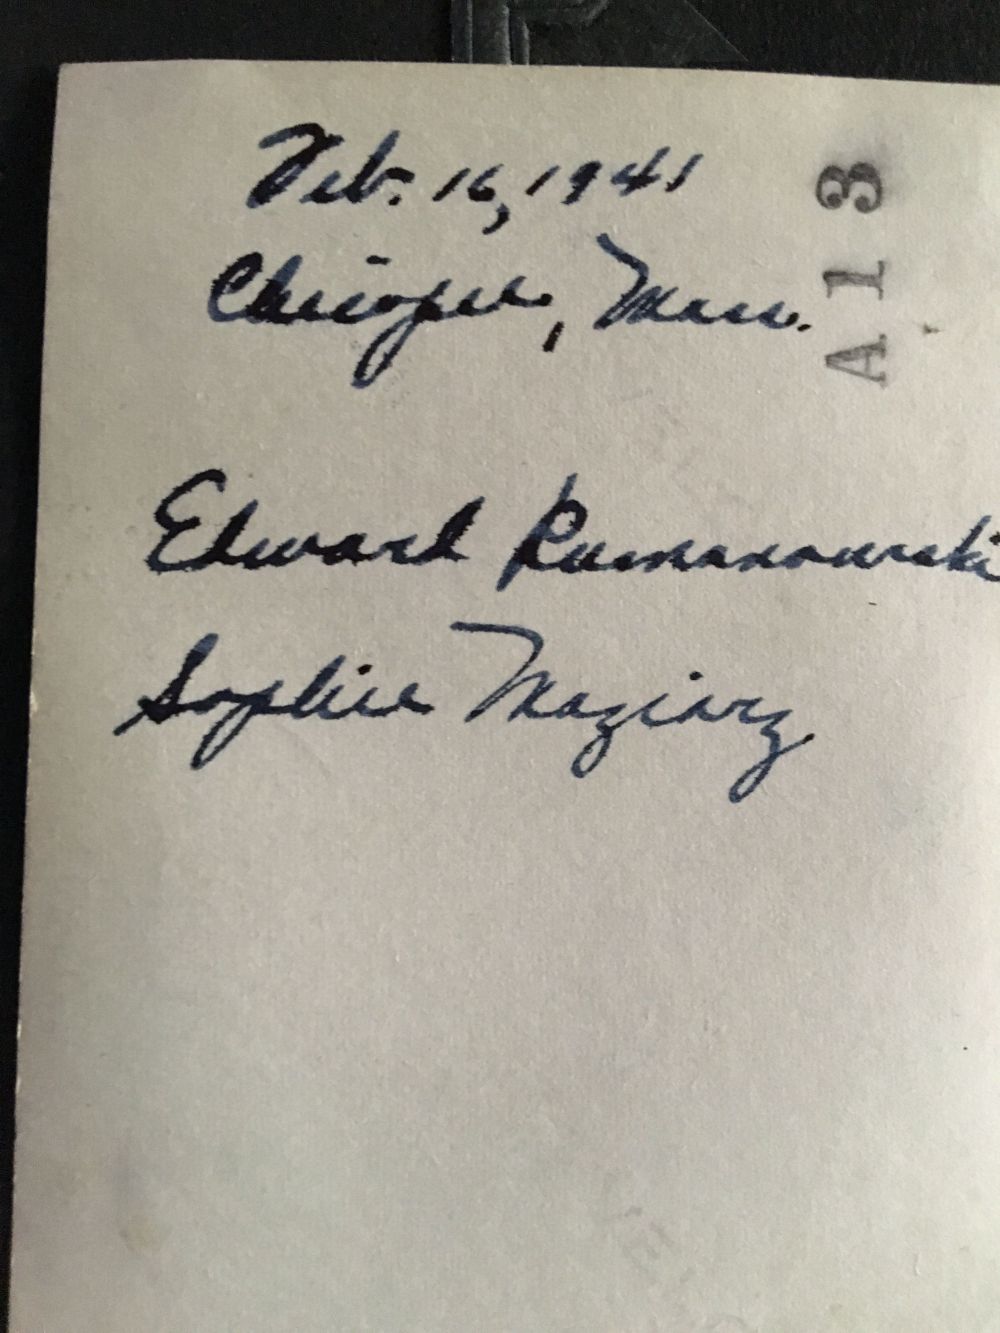 Feb. 16, 1941
Chicopee, Mass.
A13
Edward Rumanowski
Sophie Maziarz